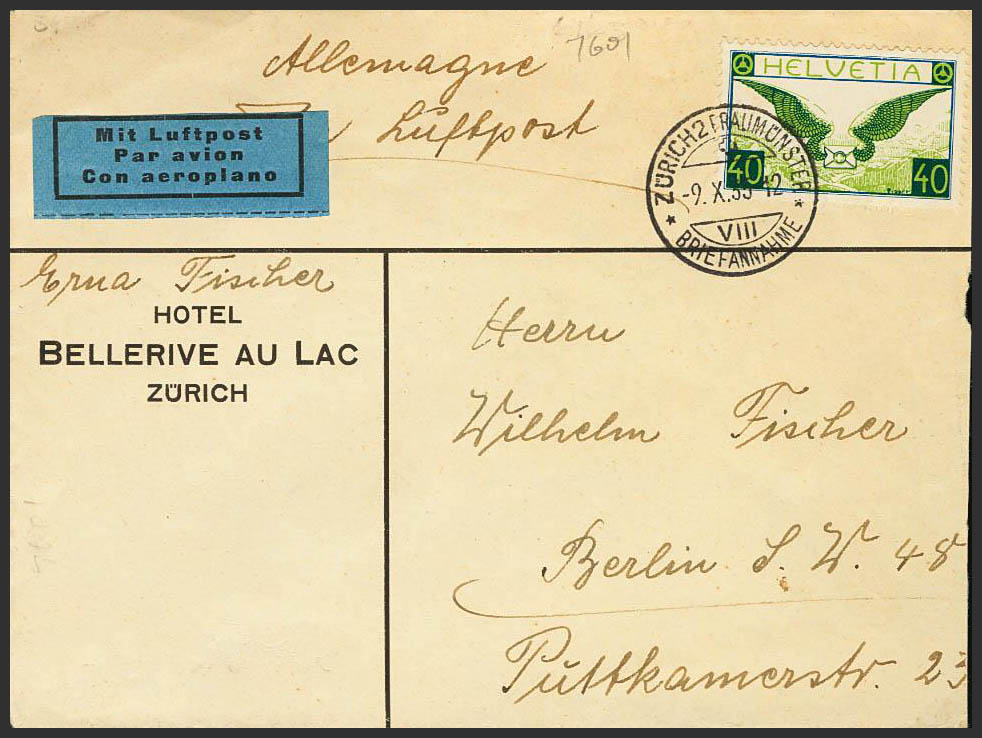 7691
Allemagne
Luftpost
Mit Luftpost
Par avion
Con aeroplano
HELVETIA
40 40
ZÜRICH 2 FRAUMÜNSTER
-9. X. 33-12
VIII
* BRIEFANNAHME *
Erna Fischer
HOTEL
BELLERIVE AU LAC
ZÜRICH
Herrn
Wilhelm Fischer
Berlin S. W. 48
Puttkamerstr. 23